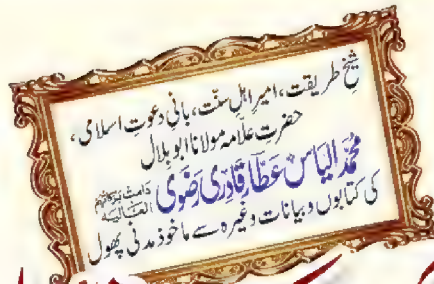 شیخِ طریقت، امیرِ اہلِ سنّت، بانیِ دعوتِ اسلامی،
حضرتِ علّامہ مولانا ابو بلال
محمد الیاس عطّار قادری رضوی دَامَتْ بَرَکَاتُہُمُ الْعَالِیَہ
کی کتابوں و بیانات وغیرہ سے ماخوذ مدنی پھول